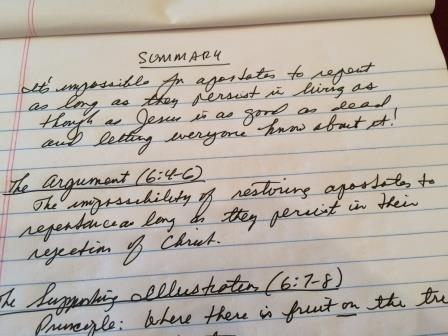 SUMMARY
It's impossible for apostates to repent
as long as they persist in living as
though as Jesus is as good as dead
and letting everyone know about it!
The Argument (6:4-6)
The impossibility of restoring apostates to
repentance as long as they persist in their
rejection of Christ.
The Supporting Illustration (6:7-8)
Principle: Where there is fruit on the tre